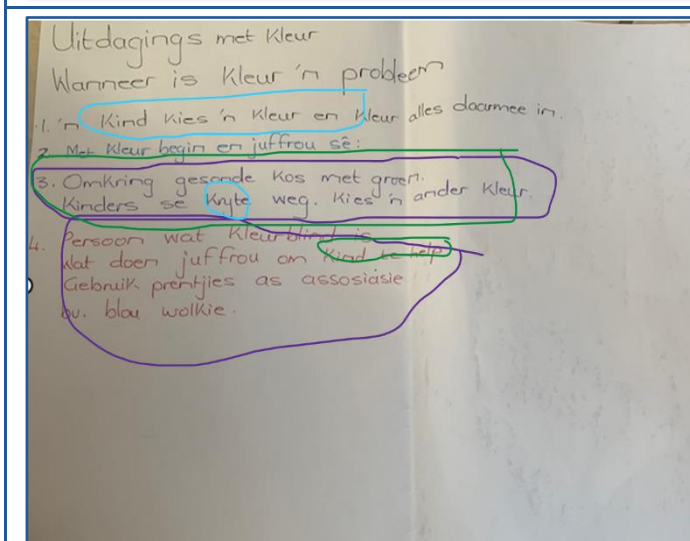 Uitdagings met Kleur
Wanneer is Kleur 'n probleem
1. 'n Kind Kies 'n Kleur en Kleur alles daarmee in.
2. Met Kleur begin en juffrou sê:
3. Omkring gesonde Kos met groen.
Kinders se Kryte weg. Kies 'n ander Kleur.
4. Persoon wat Kleurblind is
Wat doen juffrou om Kind te help
Gebruik prentjies as assosiasie
bv. blou wolkie.